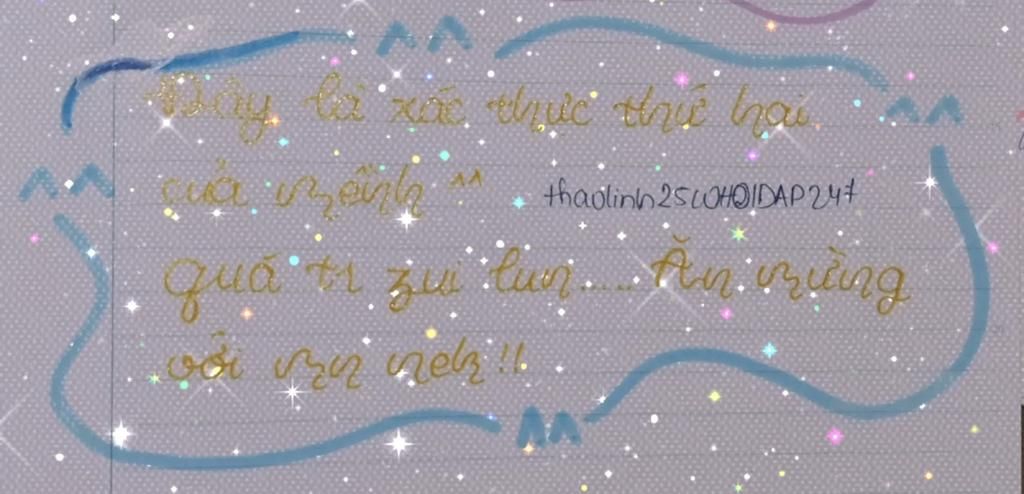 Đây là xác thực thứ hai
của mềinh ^^ thaolinh25WHOIDAP247
quá tr zui lun..... Ăn mừng
với mn nek!!